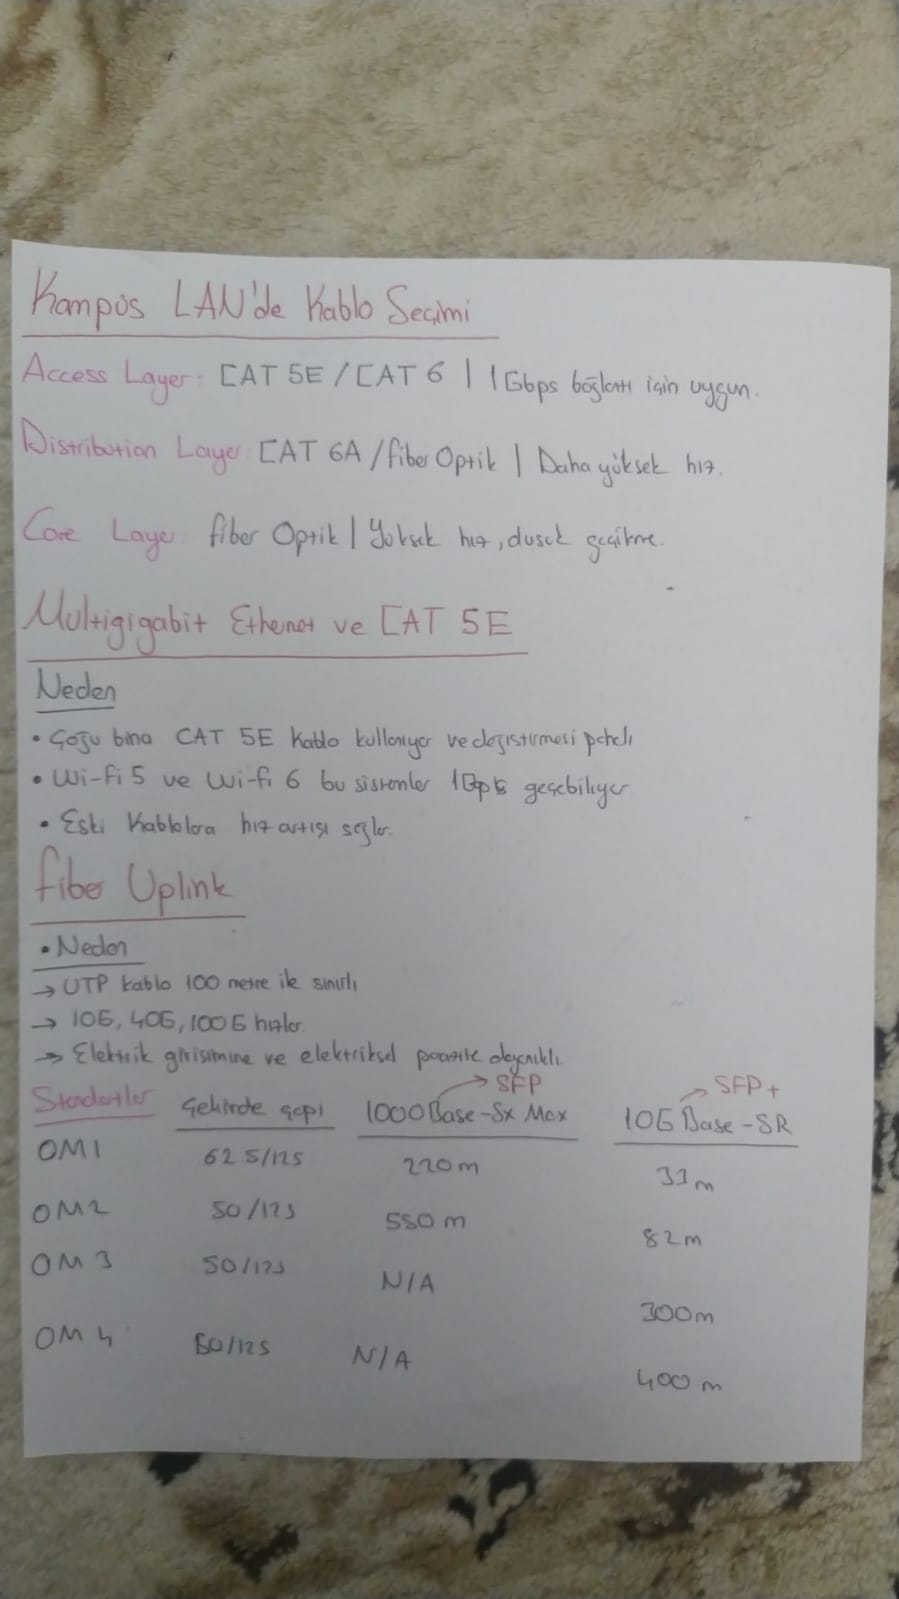 Kampüs LAN'de Kablo Seçimi
Access Layer: CAT 5E / CAT 6 | 1Gbps bağlantı için uygun.
Distribution Layer: CAT 6A / Fiber Optik | Daha yüksek hız.
Core Layer fiber Optik | Yüksek hız, dusük gecikme.
Multigigabit Ethernet ve CAT 5E
Neden
• Çoğu bina CAT 5E Kablo kullanıyor ve değiştirmesi pahalı
• Wi-Fi 5 ve Wi-fi 6 bu sistemler 1Gbps geçebiliyor
• Eski Kablolara hız artışı sağlar.
Fiber Uplink
• Neden
→ UTP kablo 100 metre ile sınırlı
→ 10G, 40G, 100G hızlar.
→ Elektrik girisimine ve elektriksel parazite dayanıklı.
→ SFP → SFP+
Standartlar Çekirde çapı 1000Base-Sx Max 10G Base-SR
OM1 62 5/125 220m 33m
OM2 50/125 550m 82m
OM3 50/125 N/A 300m
OM4 50/125 N/A 400m